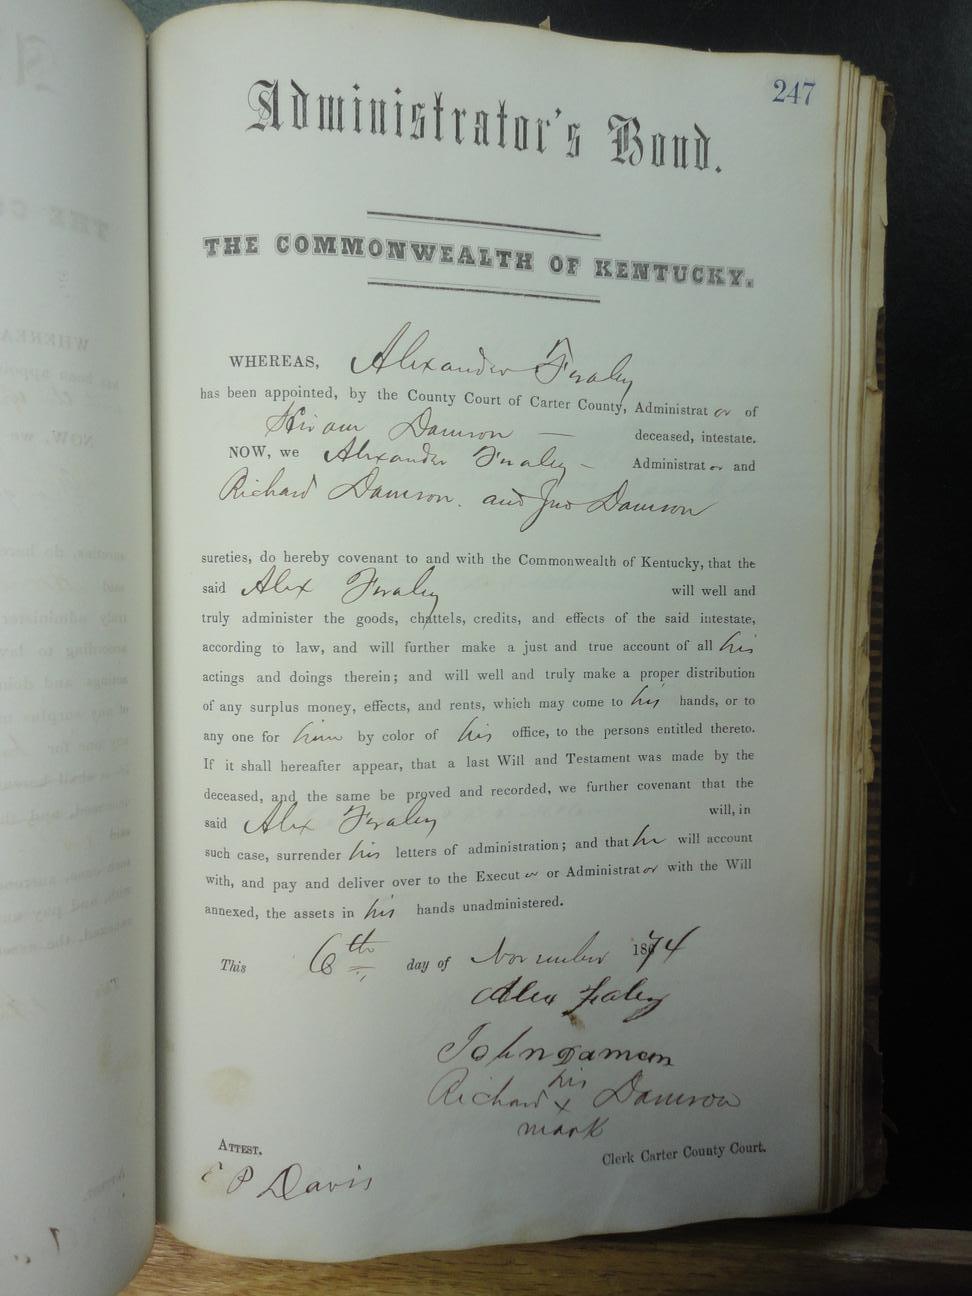 247
Administrator's Bond.
THE COMMONWEALTH OF KENTUCKY.
WHEREAS, Alexander Fraley
has been appointed, by the County Court of Carter County, Administrat or of
Hiram Damron — deceased, intestate.
NOW, we Alexander Fraley – Administrat or and
Richard Damron. and Jno Damron
sureties, do hereby covenant to and with the Commonwealth of Kentucky, that the
said Alex Fraley will well and
truly administer the goods, chattels, credits, and effects of the said intestate,
according to law, and will further make a just and true account of all his
actings and doings therein; and will well and truly make a proper distribution
of any surplus money, effects, and rents, which may come to his hands, or to
any one for him by color of his office, to the persons entitled thereto.
If it shall hereafter appear, that a last Will and Testament was made by the
deceased, and the same be proved and recorded, we further covenant that the
said Alex Fraley will, in
such case, surrender his letters of administration; and that he will account
with, and pay and deliver over to the Execut or or Administrat or with the Will
annexed, the assets in his hands unadministered.
This 6th day of November 1874
Alex Faley
John Damron
Richard his x mark Damron
ATTEST.
P Davis
Clerk Carter County Court.